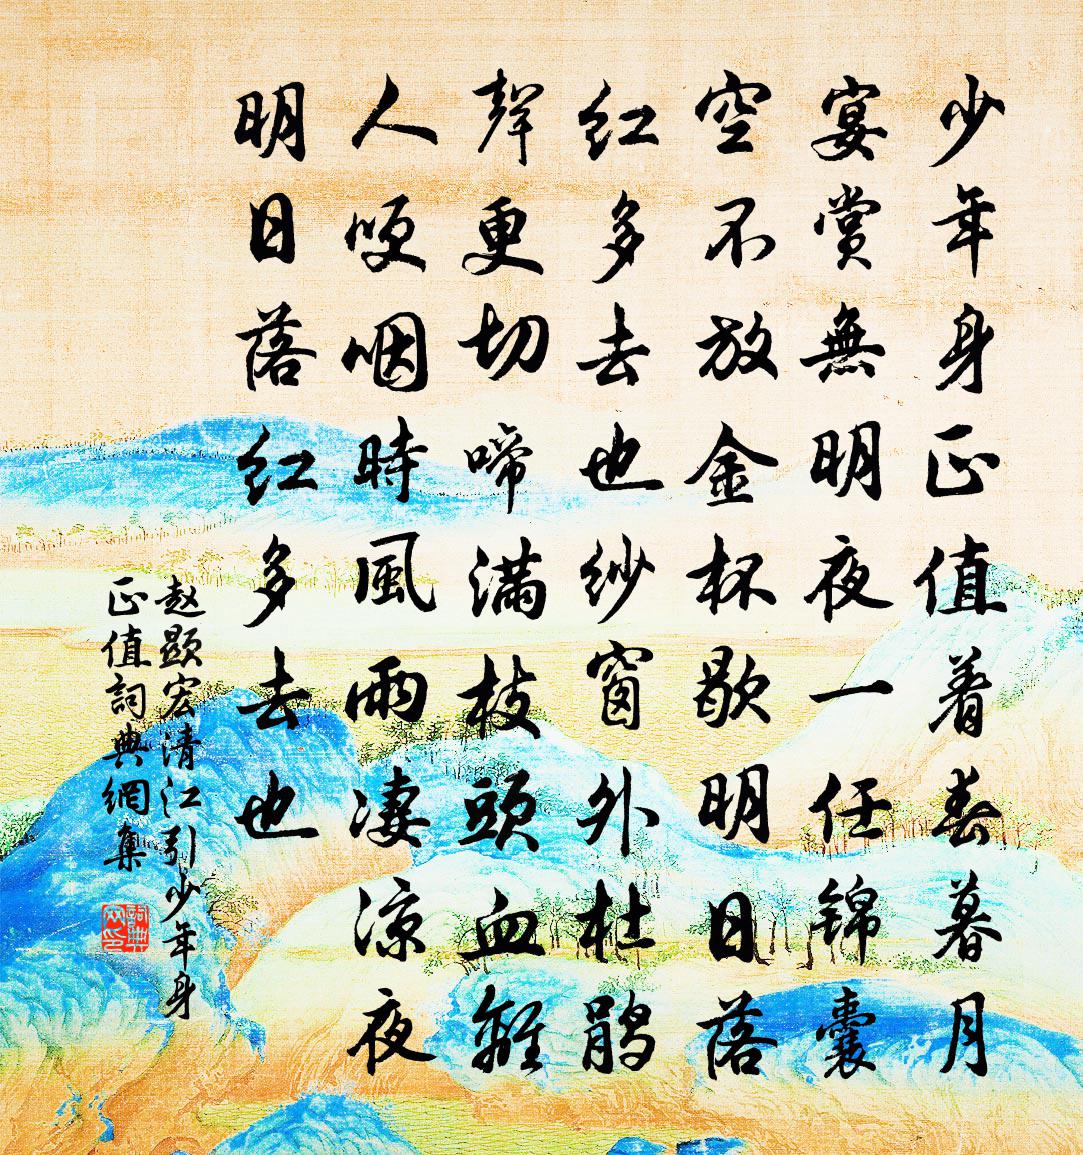 少年身正值着春暮月
宴賞無明夜一任錦囊
空不放金杯歇明日落
红多去也纱窗外杜鹃
聲更切啼滿枝頭血離
人哽咽時風雨凄凉夜
明日落红多去也
赵顯宏清江引少年身
正值詞典網集